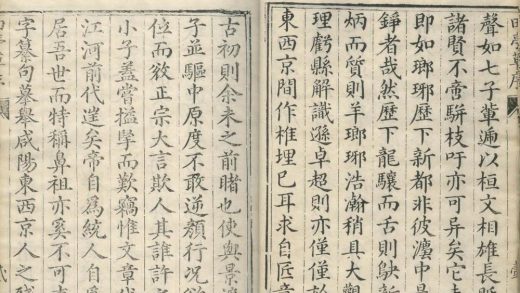 聲如七子輩遍以桓文相雄長
諸賢不啻駢枝吁亦可异矣它
即如瑯琊歷下新都非彼瀍中是
錚者哉然歷下龍驤而舌則鴃新
炳而質則羊瑯琊浩瀚稍具大觀
理虧縣解識遜卓超則亦僅僅於
東西京間作椎埋巳耳求自匠意
古初則余未之前睹也使與景
子並驅中原度不敢逆顏行况
位而敓正宗大言欺人其誰許
小子蓋嘗搤掔而歎竊惟文章
江河前代逴矣帝自為統人自
居吾世而特稱鼻祖亦奚不可
字纂句摹舉咸陽東西京人之殘